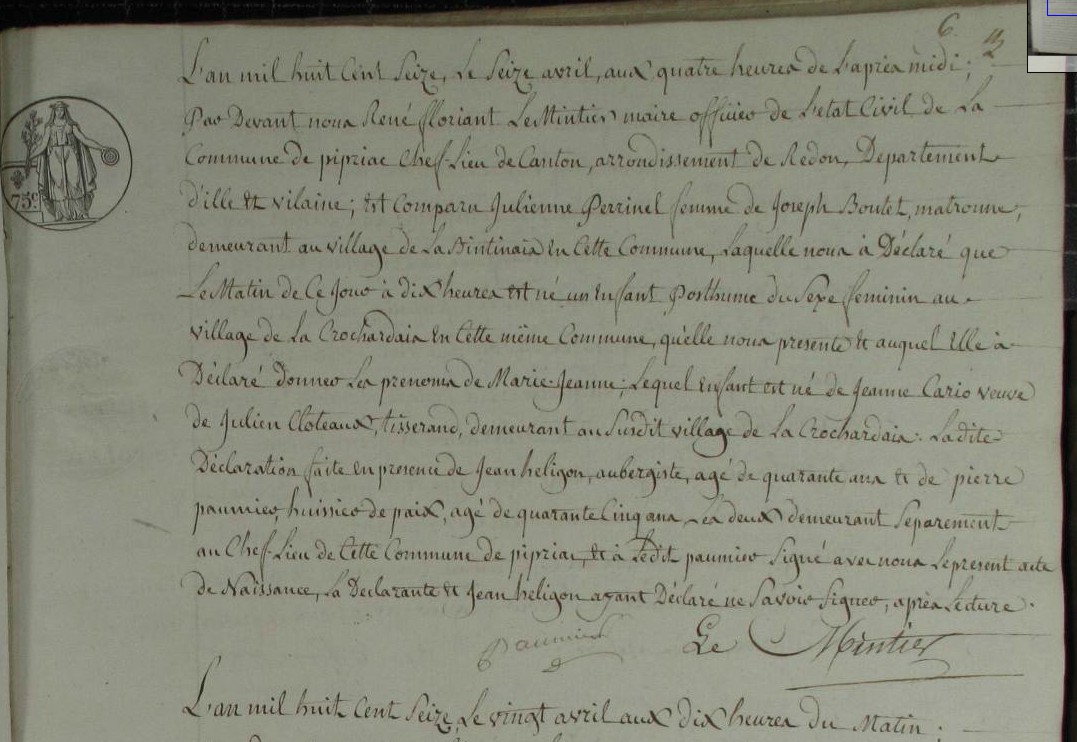 6.
L'an mil huit Cent Seize, Le Seize avril, aux quatre heures de L'après midi;
Par Devant nous René floriant Le Mintier maire officier de L'etat Civil de La
Commune de pipriac Chef-Lieu de Canton, arrondissement de Redon, Departement
d'ille et vilaine; est Comparu Julienne Perrinel femme de Joseph Boutet, matronne,
demeurant au village de La Bintinais en Cette Commune, Laquelle nous à Déclaré que
Le Matin de Ce Jour à dix heures est né un Enfant Posthume du Sexe feminin au
village de La Crochardais en Cette même Commune, qu'elle nous presente et auquel Elle à
Déclaré donner Les prenoms de Marie-Jeanne; Lequel Enfant est né de Jeanne Cario veuve
de Julien Cloteaux, tisserand, demeurant au Susdit village de La Crochardais. Ladite
Déclaration faite en presence de Jean heligon, aubergiste, agé de quarante ans et de pierre
paumier, huissier de paix, agé de quarante Cinq ans, Les deux demeurant Separement
au Chef-Lieu de Cette Commune de pipriac, et à Ledit paumier Signé avec nous Le present acte
de Naissance, La Declarante et Jean heligon ayant Déclaré ne Savoir Signer, après Lecture.
Paumier Le Mintier
L'an mil huit Cent Seize, Le vingt avril aux dix heures du Matin;
75c